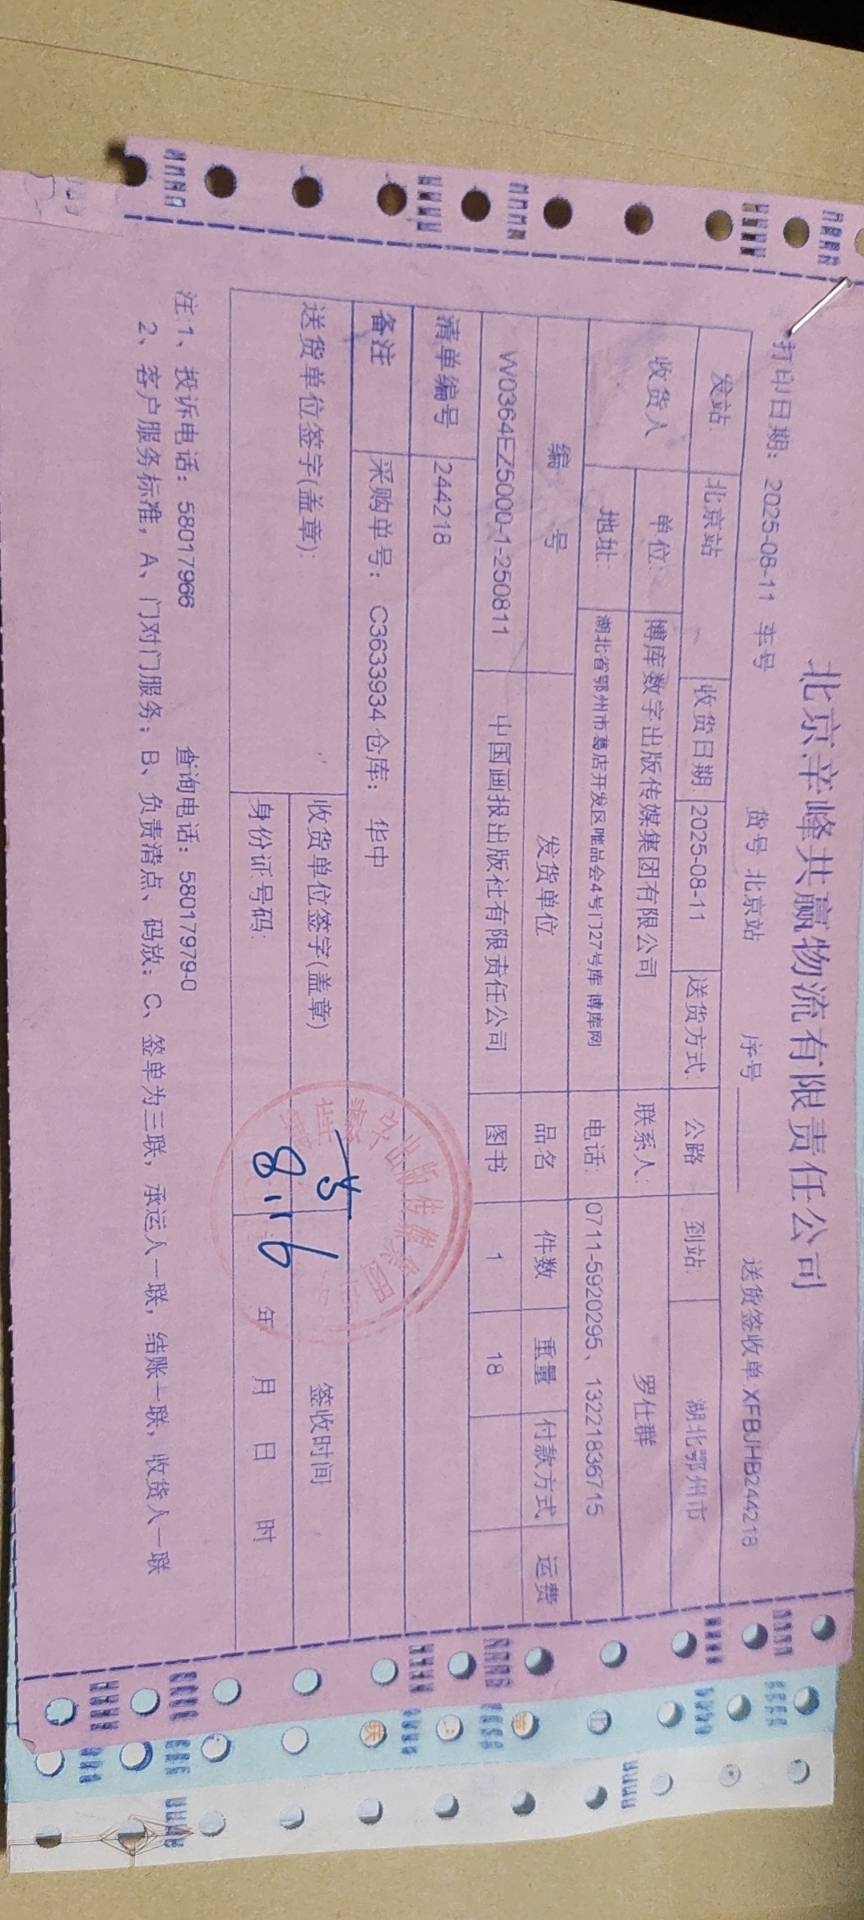 北京辛峰共赢物流有限责任公司
打印日期：2025-08-11 车号 货号 北京站 序号 送货签收单:XFBJHB244218
发站: 北京站 收货日期: 2025-08-11 送货方式: 公路 到站: 湖北鄂州市
收货人 单位: 博库数字出版传媒集团有限公司 联系人: 罗仕群
地址: 湖北省鄂州市葛店开发区唯品会4号门27号库 博库网 电话: 0711-5920295、13221836715
编 号 发货单位 品名 件数 重量 付款方式 运费
W0364EZ5000-1-250811 中国画报出版社有限责任公司 图书 1 18
清单编号 244218
备注 采购单号：C3633934 仓库：华中
送货单位签字(盖章): 收货单位签字(盖章) 签收时间
身份证号码: 8.16 年 月 日 时
注:1、投诉电话：58017966 查询电话：58017979-0
2、客户服务标准，A、门对门服务；B、负责清点、码放；C、签单为三联，承运人一联，结账一联，收货人一联